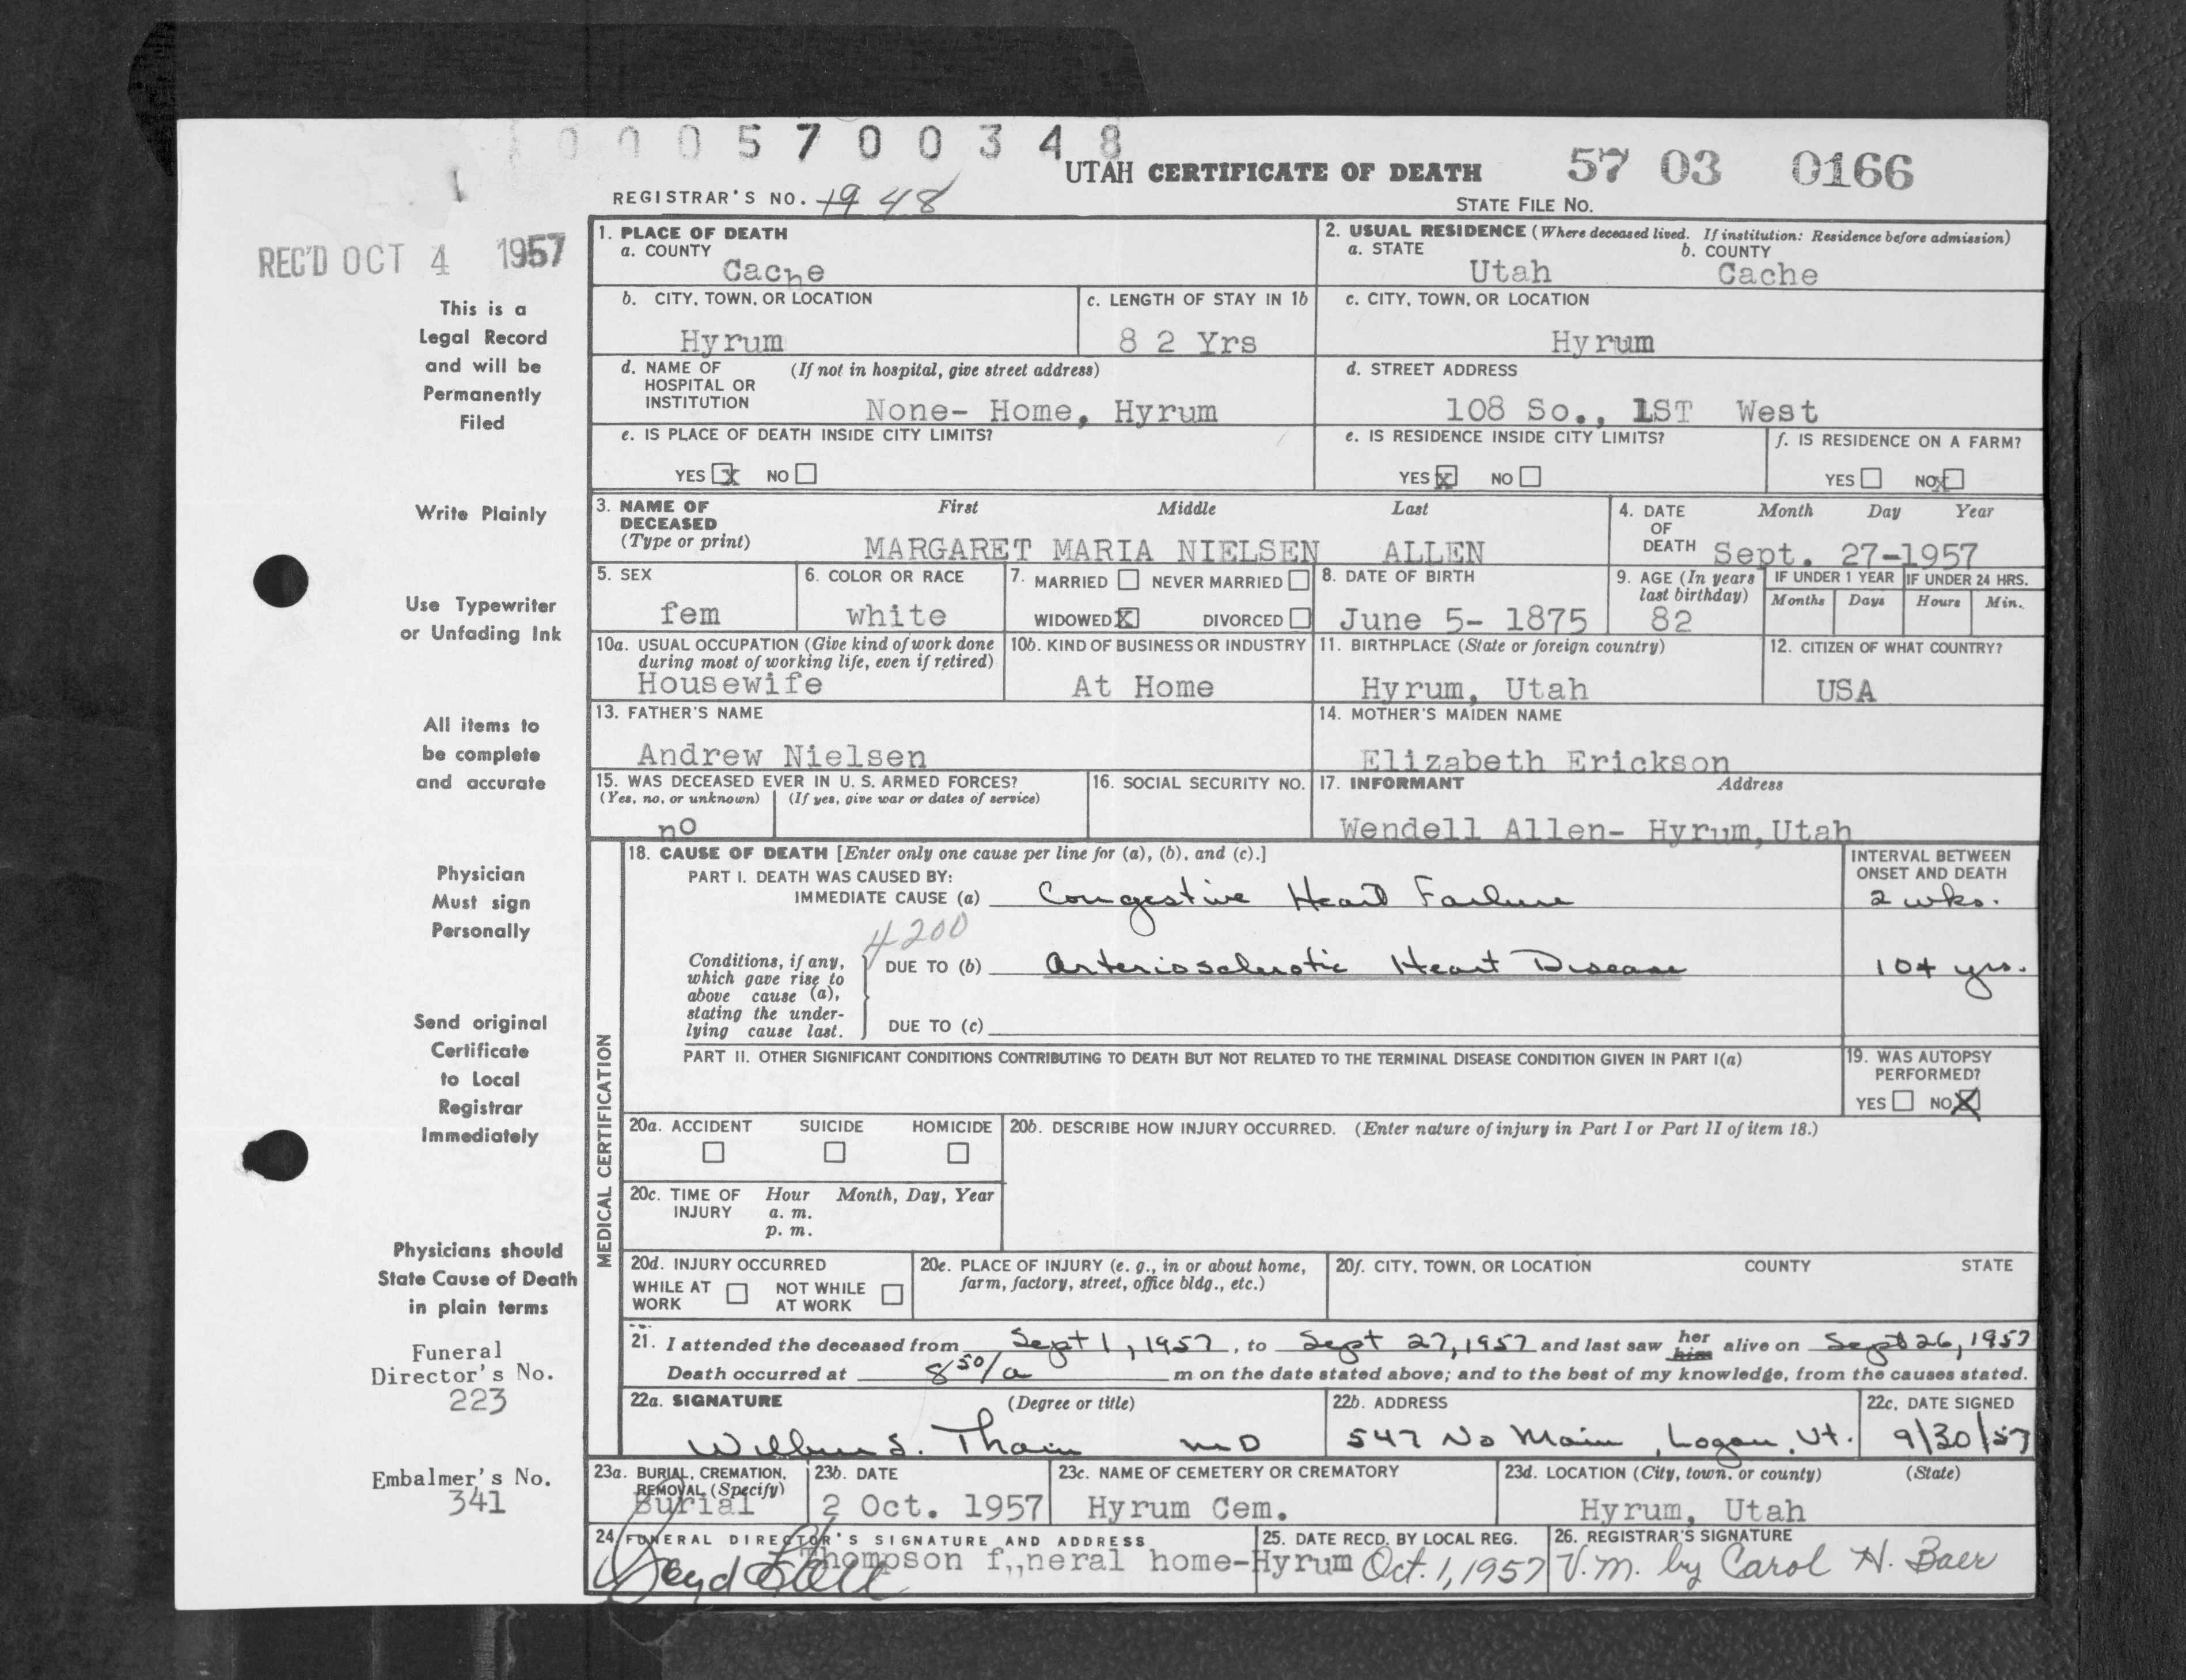 0 0 0 5 7 0 0 3 4 8
UTAH CERTIFICATE OF DEATH 57 03 0166
REGISTRAR'S NO. 19 48
STATE FILE NO.
REC'D OCT 4 1957
This is a
Legal Record
and will be
Permanently
Filed
Write Plainly
Use Typewriter
or Unfading Ink
All items to
be complete
and accurate
Physician
Must sign
Personally
Send original
Certificate
to Local
Registrar
Immediately
Physicians should
State Cause of Death
in plain terms
Funeral
Director's No.
223
Embalmer's No.
341
1. PLACE OF DEATH
a. COUNTY
Cache
2. USUAL RESIDENCE (Where deceased lived. If institution: Residence before admission)
a. STATE b. COUNTY
Utah Cache
b. CITY, TOWN, OR LOCATION
Hyrum
c. LENGTH OF STAY IN 1b
8 2 Yrs
c. CITY, TOWN, OR LOCATION
Hyrum
d. NAME OF (If not in hospital, give street address)
HOSPITAL OR
INSTITUTION None- Home, Hyrum
d. STREET ADDRESS
108 So., 1ST West
e. IS PLACE OF DEATH INSIDE CITY LIMITS?
YES X NO
e. IS RESIDENCE INSIDE CITY LIMITS?
YES X NO
f. IS RESIDENCE ON A FARM?
YES NO X
3. NAME OF First Middle Last
DECEASED
(Type or print) MARGARET MARIA NIELSEN ALLEN
4. DATE Month Day Year
OF
DEATH Sept. 27-1957
5. SEX
fem
6. COLOR OR RACE
white
7. MARRIED NEVER MARRIED
WIDOWED X DIVORCED
8. DATE OF BIRTH
June 5- 1875
9. AGE (In years
last birthday)
82
IF UNDER 1 YEAR IF UNDER 24 HRS.
Months Days Hours Min.
10a. USUAL OCCUPATION (Give kind of work done
during most of working life, even if retired)
Housewife
10b. KIND OF BUSINESS OR INDUSTRY
At Home
11. BIRTHPLACE (State or foreign country)
Hyrum, Utah
12. CITIZEN OF WHAT COUNTRY?
USA
13. FATHER'S NAME
Andrew Nielsen
14. MOTHER'S MAIDEN NAME
Elizabeth Erickson
15. WAS DECEASED EVER IN U. S. ARMED FORCES?
(Yes, no, or unknown) (If yes, give war or dates of service)
no
16. SOCIAL SECURITY NO.
17. INFORMANT Address
Wendell Allen- Hyrum, Utah
MEDICAL CERTIFICATION
18. CAUSE OF DEATH [Enter only one cause per line for (a), (b), and (c).]
PART I. DEATH WAS CAUSED BY:
IMMEDIATE CAUSE (a) Congestive Heart Failure
INTERVAL BETWEEN
ONSET AND DEATH
2 wks.
4200
Conditions, if any,
which gave rise to
above cause (a),
stating the under-
lying cause last.
DUE TO (b) Arteriosclerotic Heart Disease 10+ yrs.
DUE TO (c)
PART II. OTHER SIGNIFICANT CONDITIONS CONTRIBUTING TO DEATH BUT NOT RELATED TO THE TERMINAL DISEASE CONDITION GIVEN IN PART I(a)
19. WAS AUTOPSY
PERFORMED?
YES NO X
20a. ACCIDENT SUICIDE HOMICIDE
20b. DESCRIBE HOW INJURY OCCURRED. (Enter nature of injury in Part I or Part II of item 18.)
20c. TIME OF Hour Month, Day, Year
INJURY a. m.
p. m.
20d. INJURY OCCURRED
WHILE AT NOT WHILE
WORK AT WORK
20e. PLACE OF INJURY (e. g., in or about home,
farm, factory, street, office bldg., etc.)
20f. CITY, TOWN, OR LOCATION COUNTY STATE
21. I attended the deceased from Sept 1, 1957, to Sept 27, 1957 and last saw her him alive on Sept 26, 1957
Death occurred at 8 50/a m on the date stated above; and to the best of my knowledge, from the causes stated.
22a. SIGNATURE (Degree or title)
Wilbur S. Thain MD
22b. ADDRESS
547 No Main, Logan, Ut.
22c. DATE SIGNED
9/30/57
23a. BURIAL, CREMATION,
REMOVAL (Specify)
Burial
23b. DATE
2 Oct. 1957
23c. NAME OF CEMETERY OR CREMATORY
Hyrum Cem.
23d. LOCATION (City, town, or county) (State)
Hyrum, Utah
24. FUNERAL DIRECTOR'S SIGNATURE AND ADDRESS
Thompson f,,neral home-Hyrum
25. DATE RECD. BY LOCAL REG.
Oct. 1, 1957
26. REGISTRAR'S SIGNATURE
V. m. by Carol H. Baer